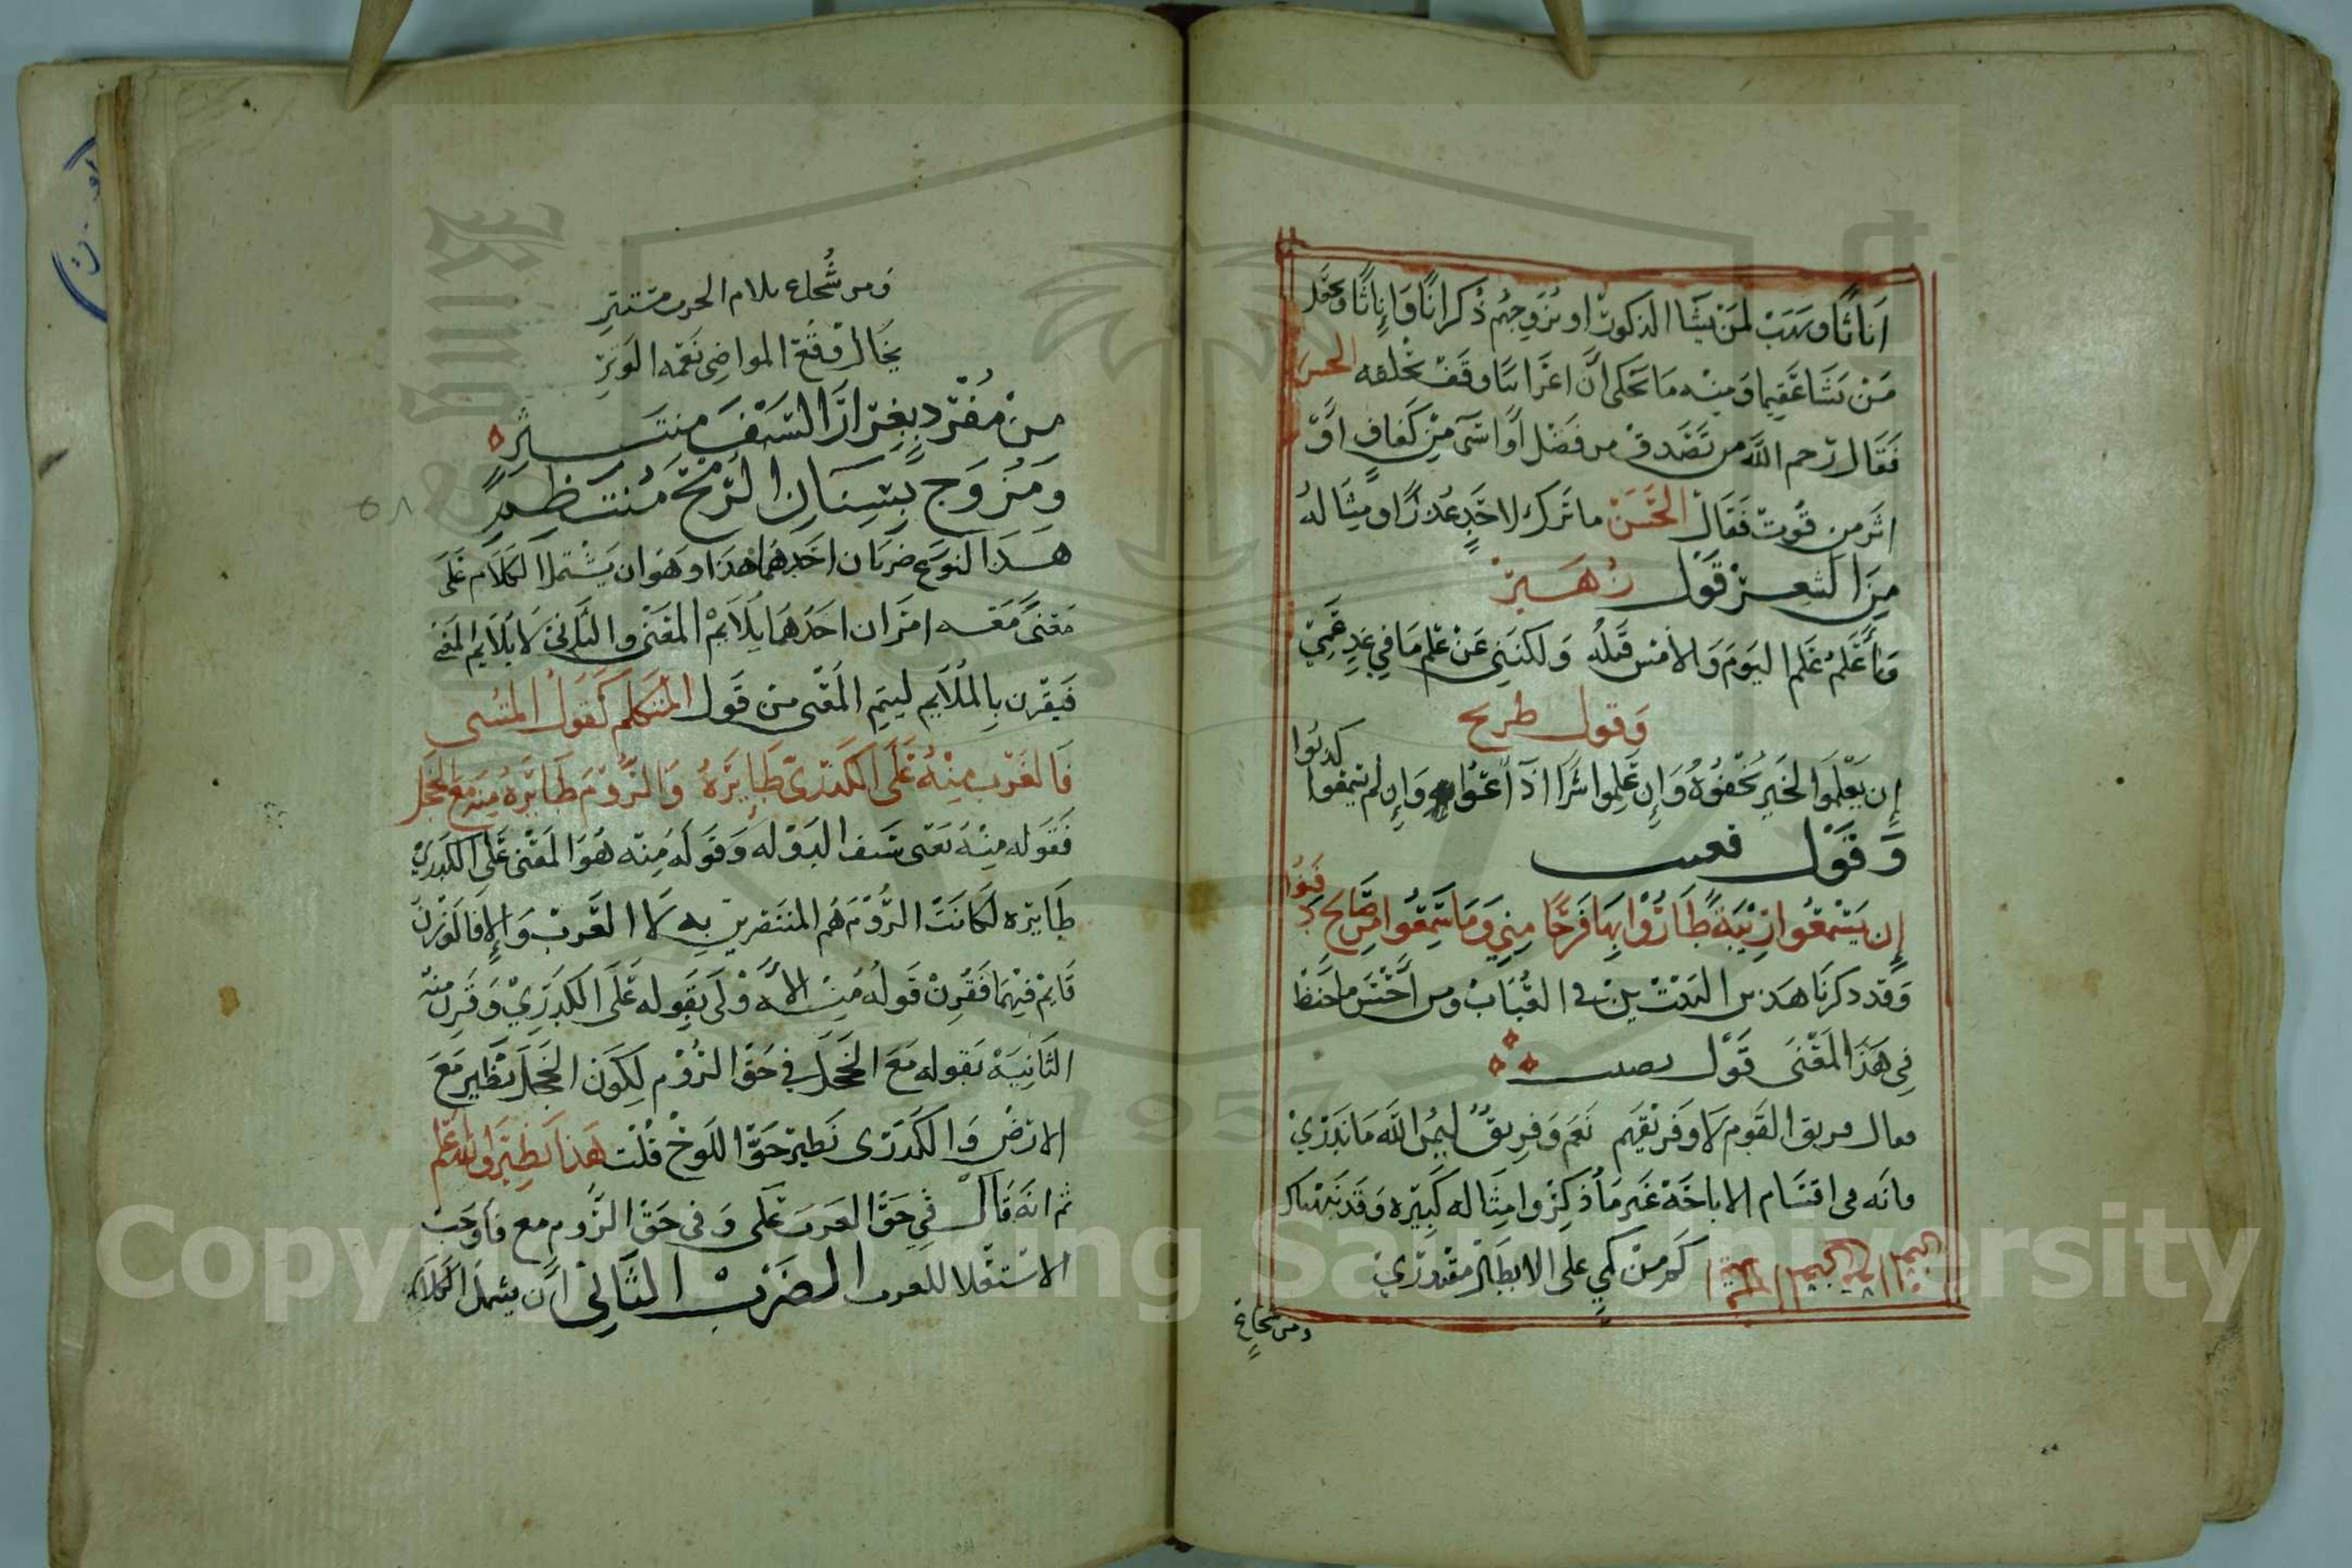 اناثا ويهب لمن يشا الذكور او يزوجهم ذكرانا واناثا ويجعل
من يشا عقيما ومنه ما يحكى ان اعرابيا وقف بحلقه الحسن
فقال رحم الله من تصدق من فضل او اسى من كفاف او
اثر من قوت فقال الحسن ما ترك لاحد عذرا ومثاله
من الشعر قول زهير
واعلم علم اليوم والامس قبله ولكنني عن علم ما في غد عمي
وقول طريح
إن يعلموا الخير يخفوه وإن علموا شرا اذاعوا وإن لم يعلموا كذبوا
وقول قعنب
إن يسمعوا ريبة طاروا بها فرحا مني وما سمعوا من صالح دفنوا
وقد ذكرنا هذين البيتين في العتاب ومن احسن ما حفظ
في هذا المعنى قول نصيب
فقال فريق القوم لا وفريقهم نعم وفريق ليمن الله ما ندري
فانه في اقسام الاباحة غير ما ذكر وامثاله كبيره وقد نبهناك
كم من كمي على الابطال مقتدري
ومن شجاع
ومن شجاع بلام الحرب مستتر
يخال وقع المواضي نغمه الوتر
من مفرد بغرار السيف منتشر
ومزوج بسنان الرمح منتظم
هذا النوع ضربان احدهما هذا وهو ان يشتمل الكلام على
معنى معه امران احدهما يلايم المعنى والثاني لا يلايم المعنى
فيقرن بالملايم ليتم المعنى من قول المتكلم كقول المتنبي
فالعرب منه على الكدري طايرة والروم طايره منه مع الحجل
فقوله منه يعنى سيف الدوله وقوله منه هو المعنى على الكدري
طايره لكانت الروم هم المنتقرين به لا العرب وإلا فالوزن
قايم فيهما فقرن قوله منه الاولى بقوله على الكدري وقرن منه
الثانية بقوله مع الحجل في حق الروم لكون الحجل تطير مع
الارض والكدرى تطير حق اللوح قلت هذا نظير والله اعلم
ثم انه قال في حق العرب على وفي حق الروم مع فاوجب
الاستعلا للعرب الضرب الثاني ان يشمل الكلام
٥٨
Copyright © King Saud University
1957